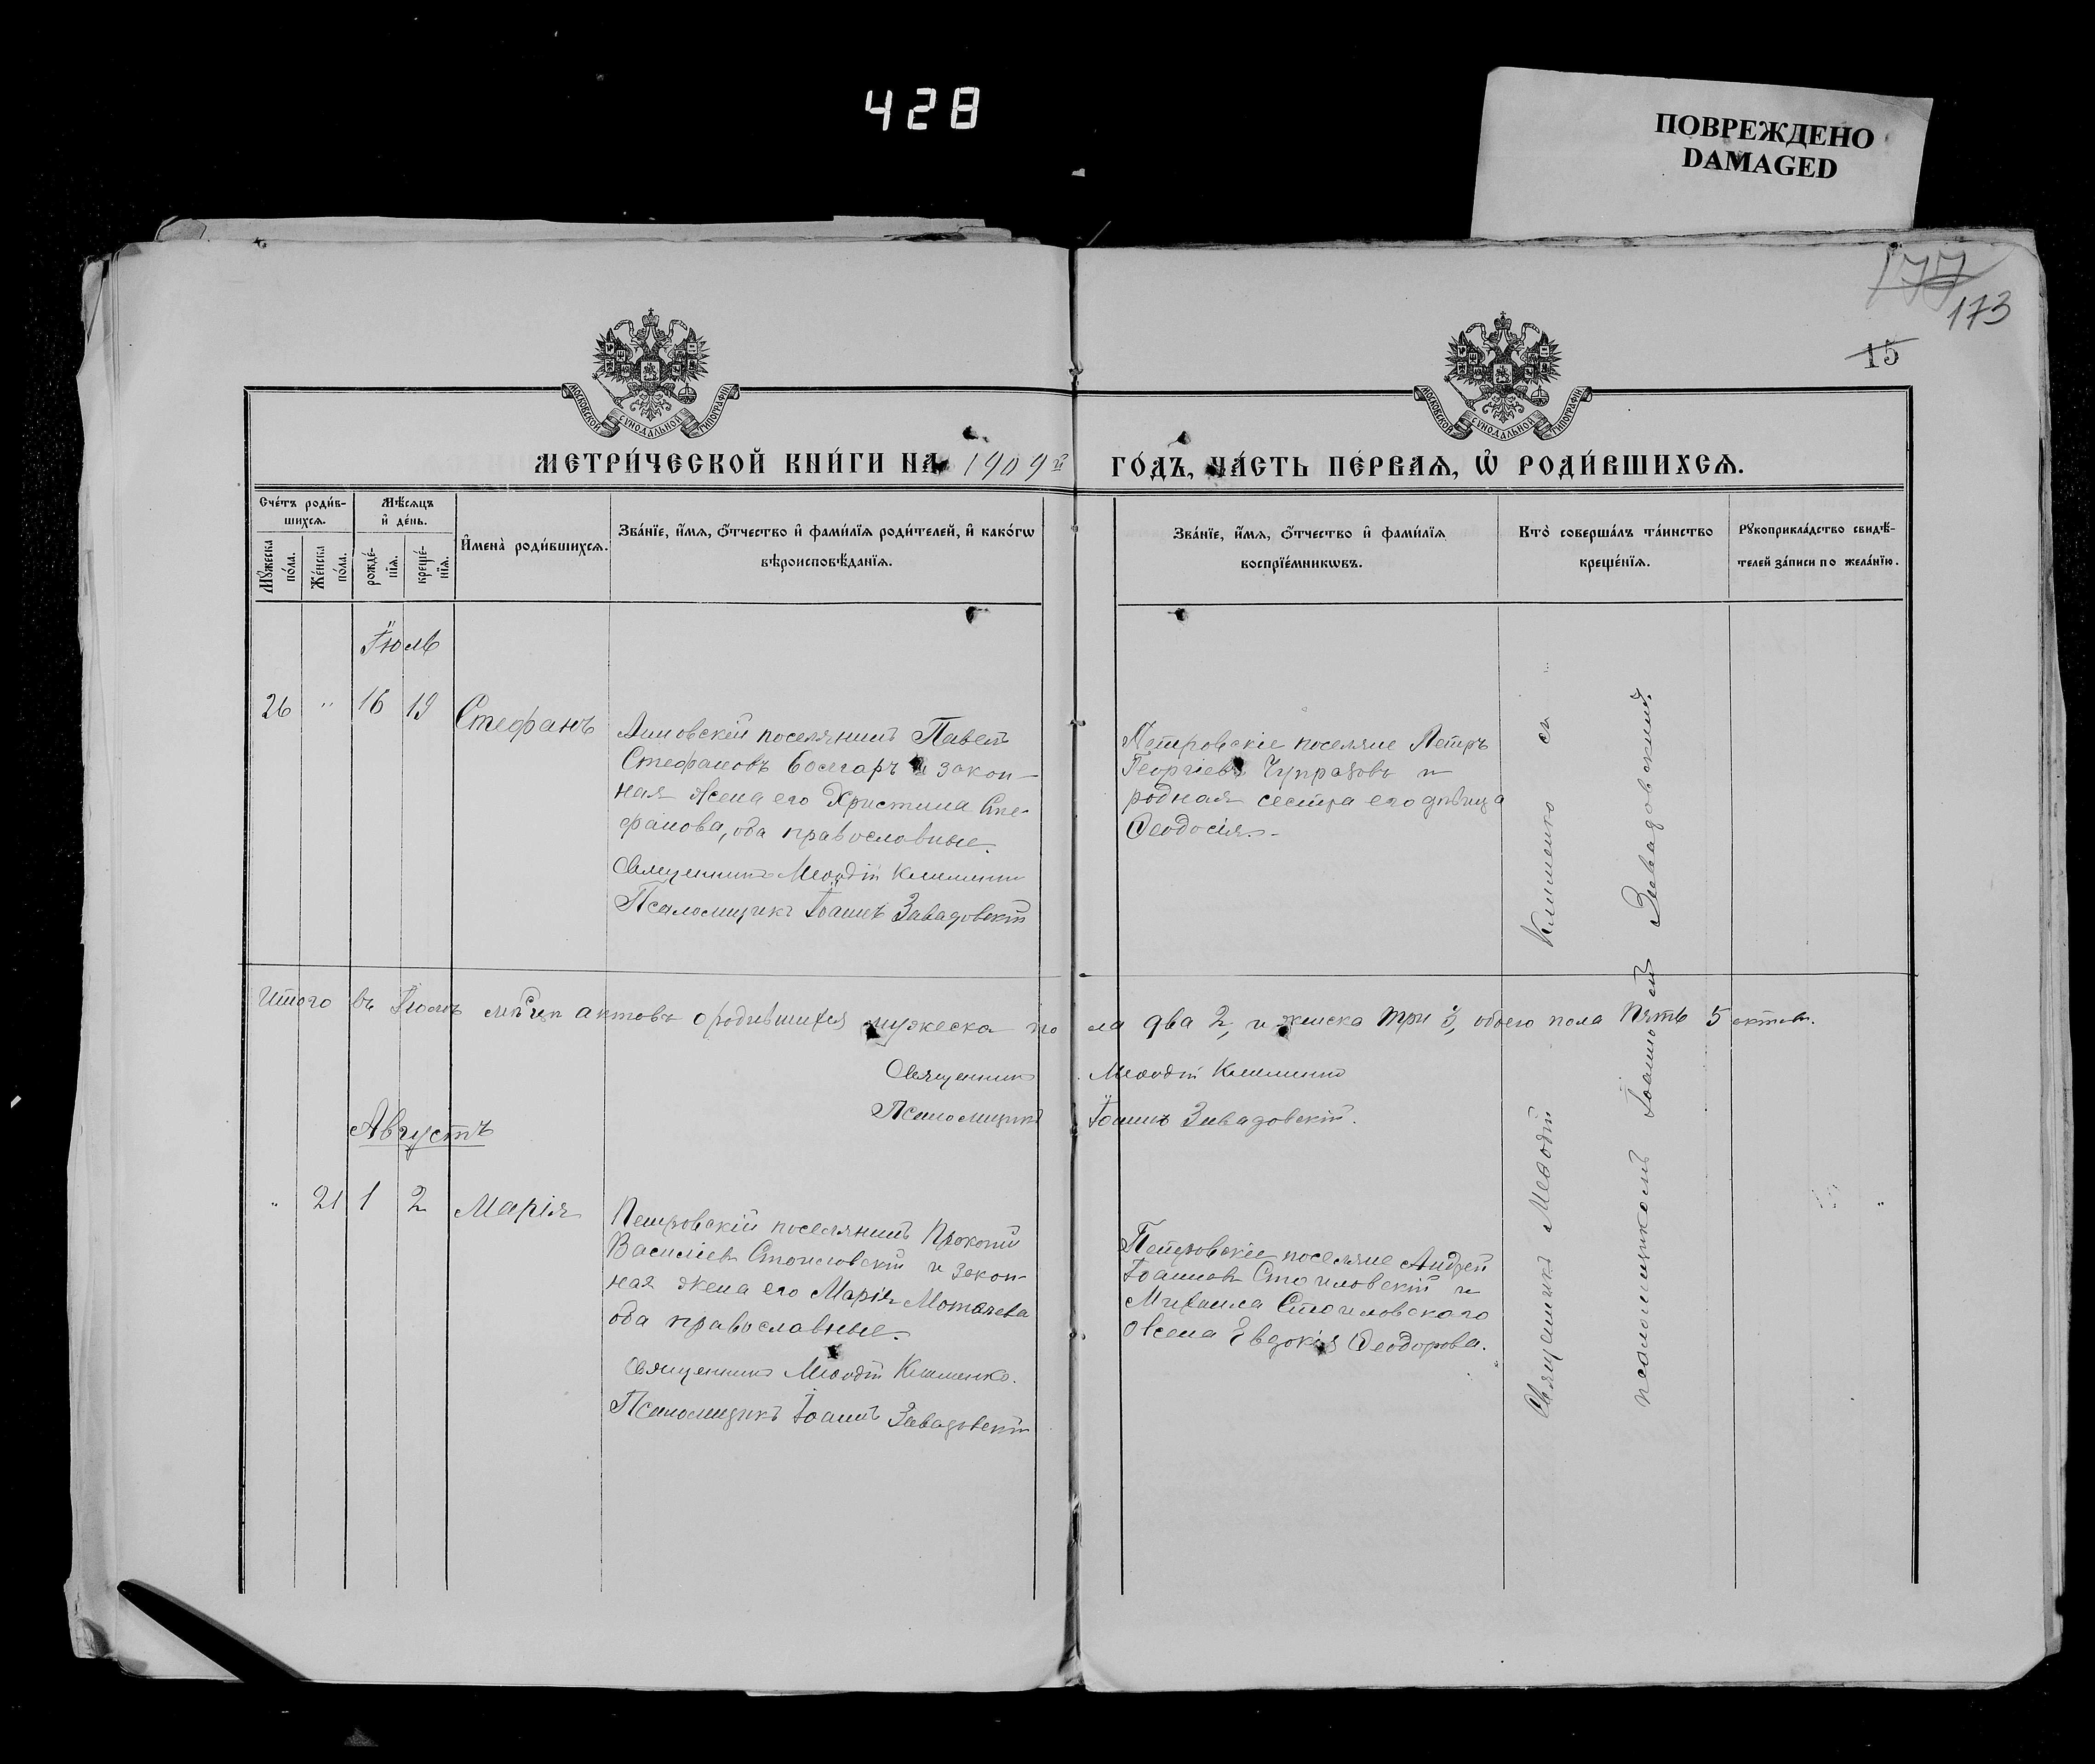 428
ПОВРЕЖДЕНО
DAMAGED
177
173
15
МОСКОВСКОЙ СѴНОДАЛЬНОЙ ТИПОГРАФІИ
МОСКОВСКОЙ СѴНОДАЛЬНОЙ ТИПОГРАФІИ
МЕТРИ́ЧЕСКОЙ КНИ́ГИ НА 1909й ГО́ДЪ, ЧА́СТЬ ПЕ́РВАѦ, Ѽ РОДИ́ВШИХСѦ.
Сче́тъ роди́в-
шихсѧ.
Мѣ́сѧцъ
и҆ де́нь.
Мꙋ́жеска по́ла.
Же́нска по́ла.
рожде́-
нїѧ.
креще́-
нїѧ.
И҆мена̀ роди́вшихсѧ.
Зва́нїе, и҆́мѧ, ѻ҆́тчество и҆ фами́лїѧ роди́телей, и҆ како́гѡ
вѣроисповѣ́данїѧ.
Зва́нїе, и҆́мѧ, ѻ҆́тчество и҆ фами́лїѧ
воспрїе́мникѡвъ.
Кто̀ соверша́лъ та́инство
креще́нїѧ.
Рꙋкоприкла́дство свидѣ́-
телей за́писи по жела́нїю.
Іюль
26 " 16 19 Стефанъ
поселянинъ Павелъ
Стефановъ Болгаръ и закон-
ная жена его Христина Сте-
фанова, оба православные.
Священникъ Меѳодій Клименко
Псаломщикъ Іоаннъ Завадовскій
Петровскіе поселяне Петръ
Георгіевъ и
родная сестра его дѣвица
Ѳеодосія.
Итого въ Іюлѣ мѣсяцѣ актовъ о родившихся мужеска пола два 2, и женска три 3, обоего пола пять 5 актовъ.
Священникъ Меѳодій Клименко
Псаломщикъ Іоаннъ Завадовскій.
Августъ
" 21 1 2 Марія
Петровскій поселянинъ Прокопій
Василіевъ Стоиловскій и закон-
ная жена его Марія
оба православные.
Священникъ Меѳодій Клименко.
Псаломщикъ Іоаннъ Завадовскій
Петровскіе поселяне Андрей
Іоанновъ Стоиловскій и
Михаила Стоиловскаго
жена Евдокія Ѳеодорова.
Священникъ Меѳодій Клименко съ
псаломщикомъ Іоанномъ Завадовскимъ.